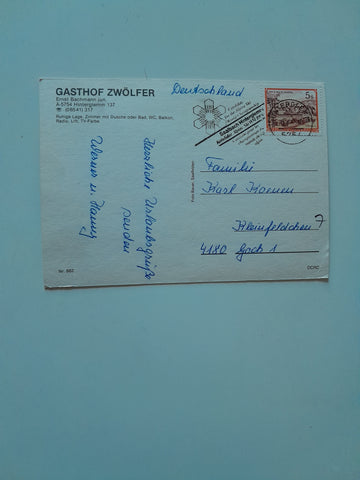 GASTHOF ZWÖLFER
Ernst Bachmann jun.
A-5754 Hinterglemm 137
☎ (06541) 317
Ruhige Lage, Zimmer mit Dusche oder Bad, WC, Balkon,
Radio, Lift, TV-Farbe.
Deutschland
5 S
Herzliche Urlaubsgrüße
senden
Werner u. Hanny
Foto Bauer, Saalfelden
Familie
Karl Koenen
Kleinfeldchen 7
4180 Goch 1
Nr. 662